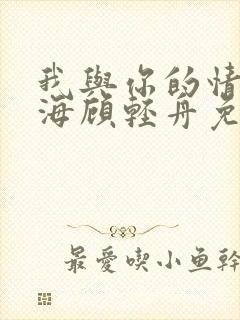 我與你的情
海顧輕舟免
最愛喫小鱼幹